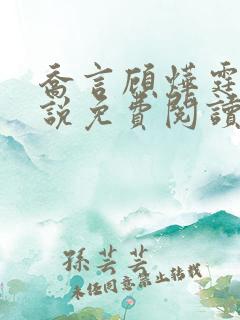 喬言顧燁霆
說免費閱讀
孫芸芸
未經同意禁止轉載